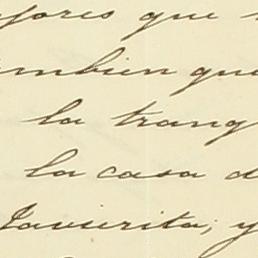 jores que
mbien que
la tranq
la casa d
Javierita; y